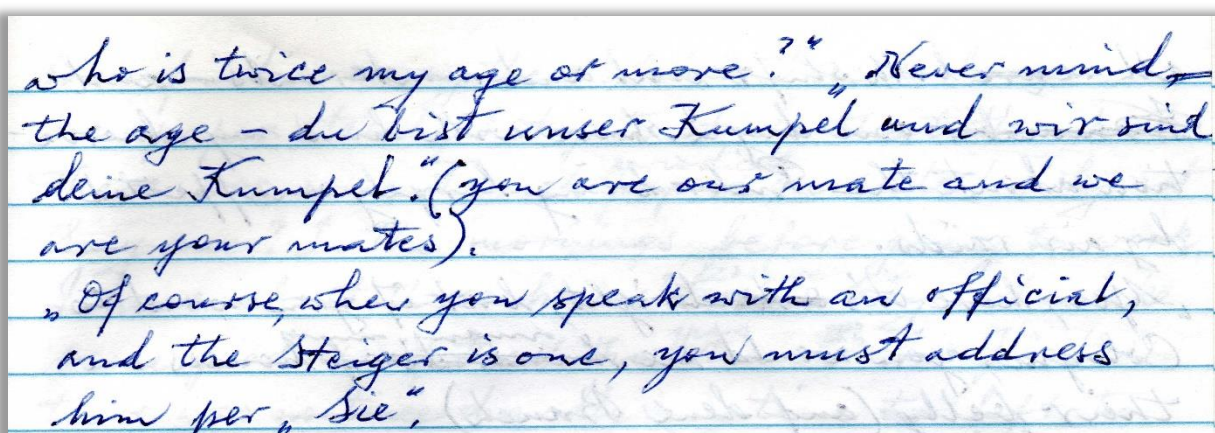 who is twice my age or more?“ „Never mind,
the age – du bist unser Kumpel und wir sind
deine Kumpel.“ (you are our mate and we
are your mates).
„Of course, when you speak with an official,
and the Steiger is one, you must address
him per „Sie“.